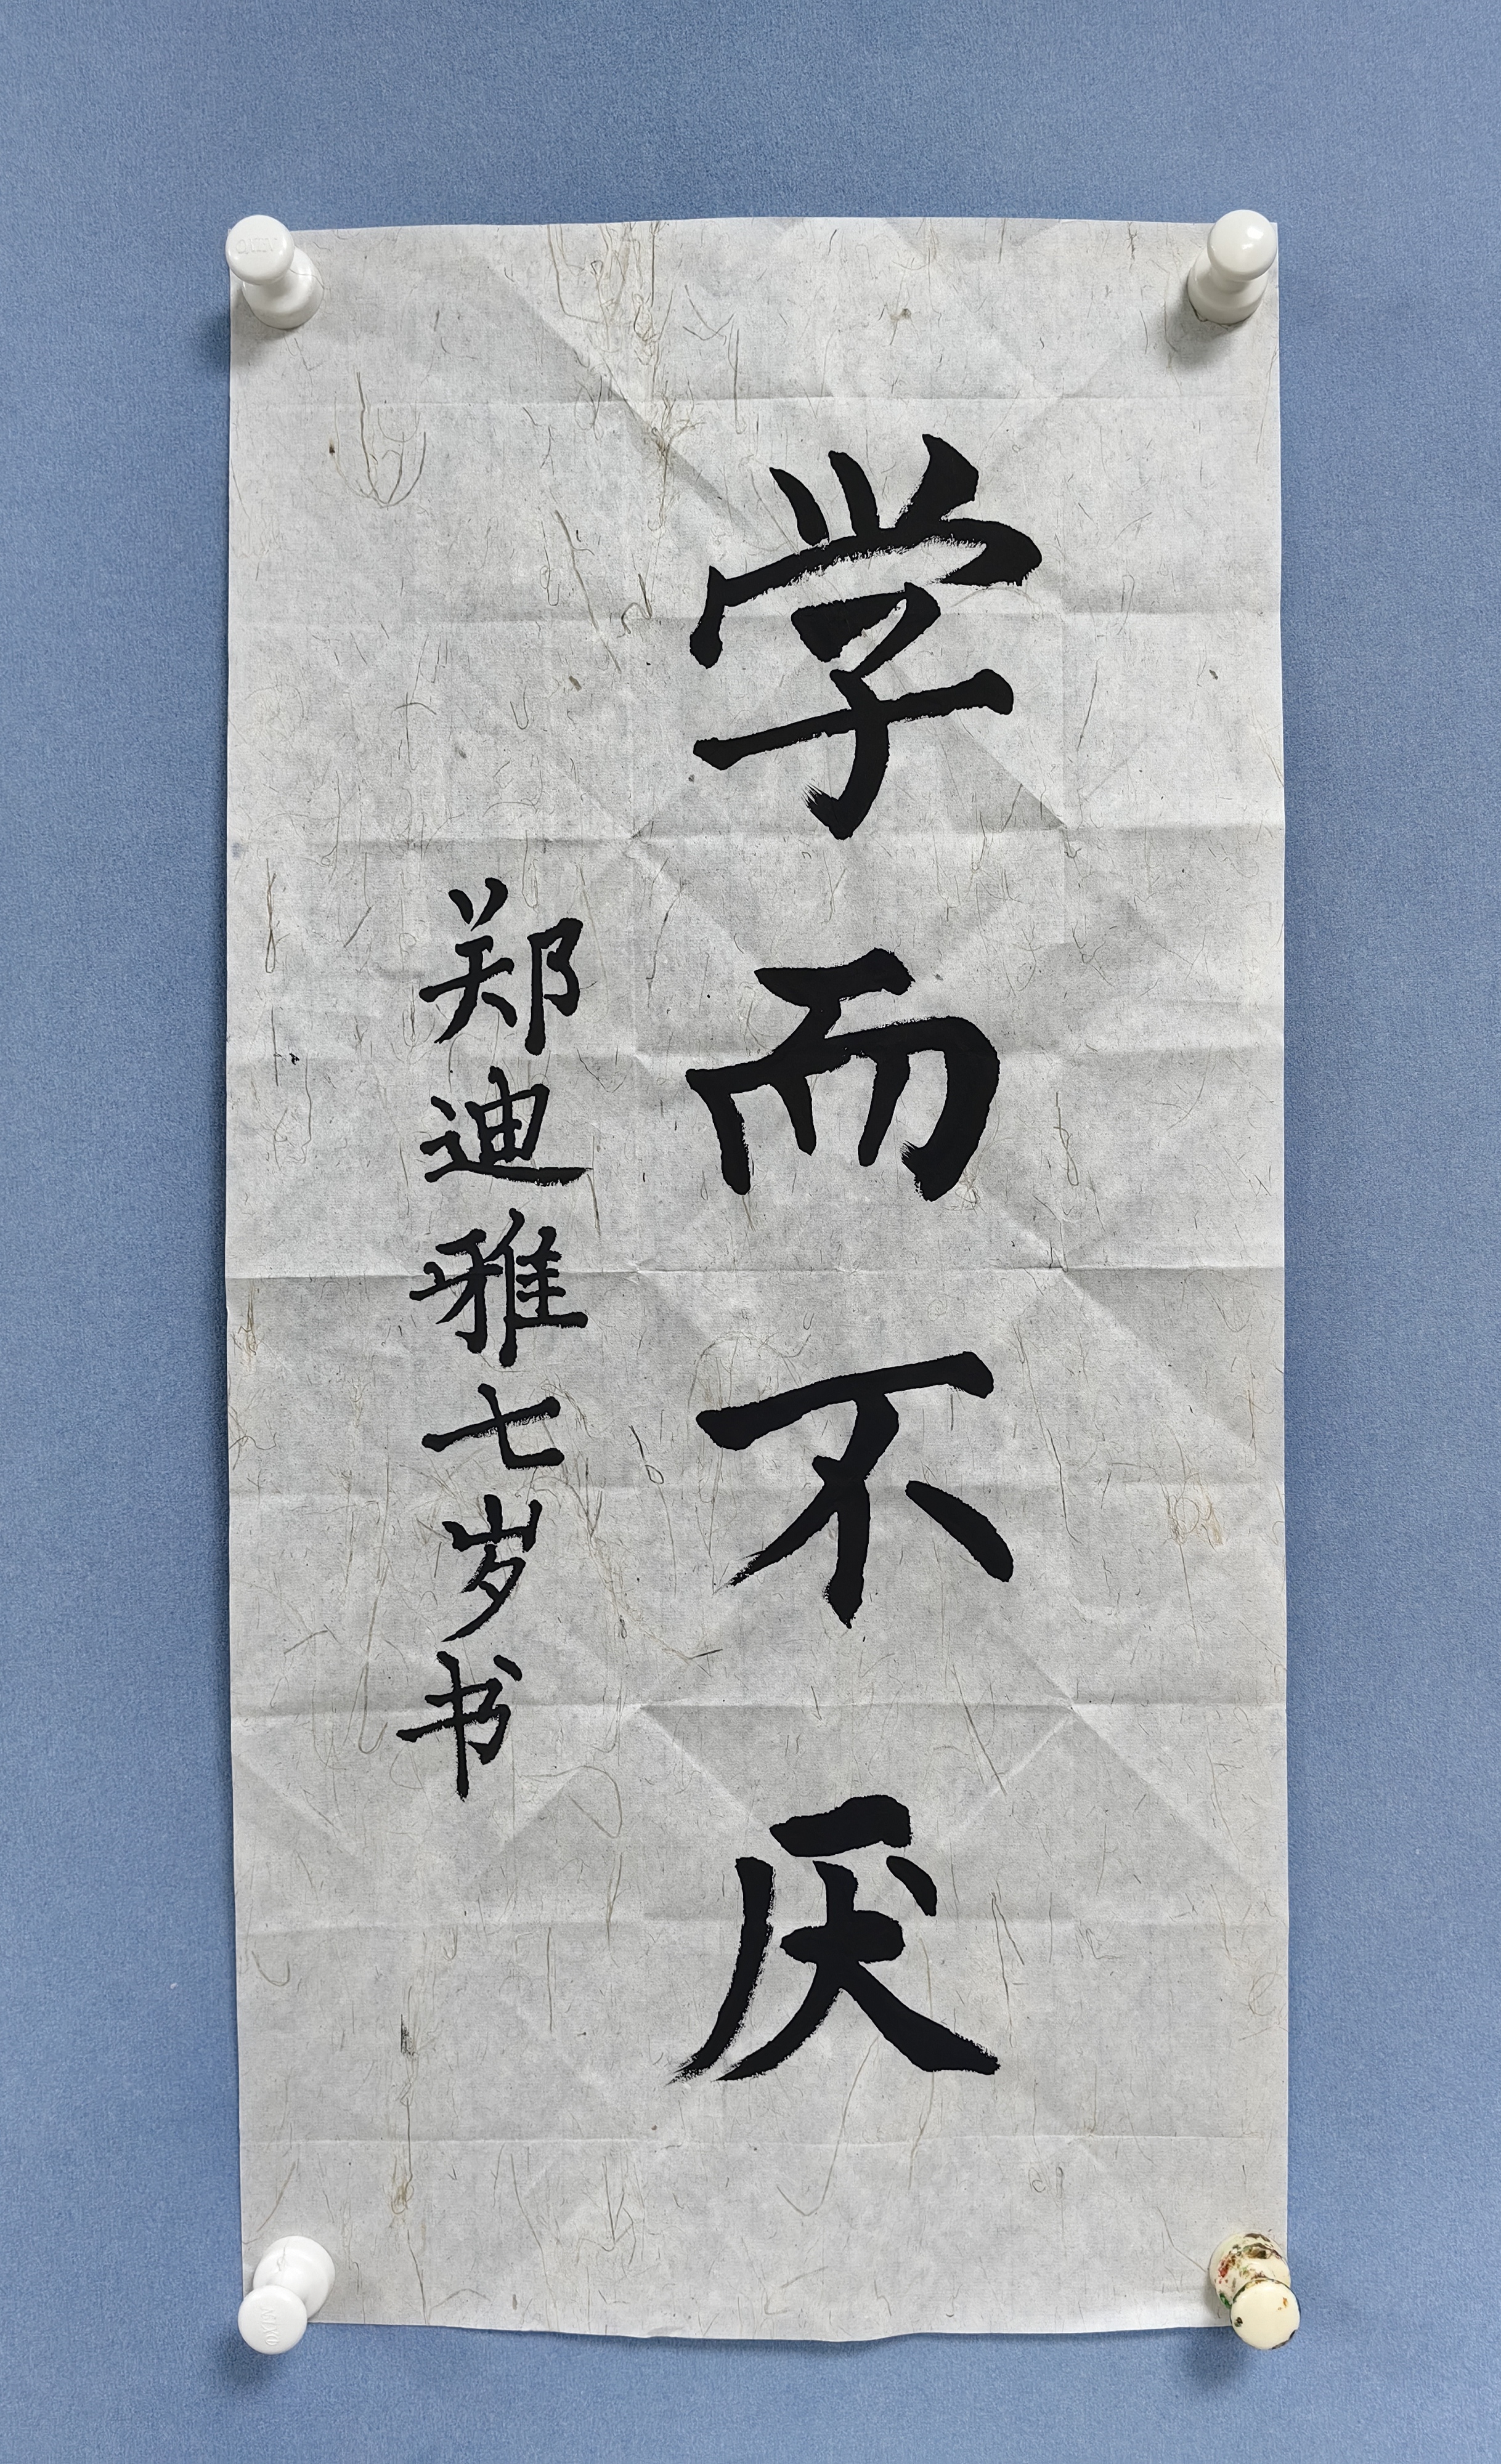 学而不厌
郑迪雅七岁书